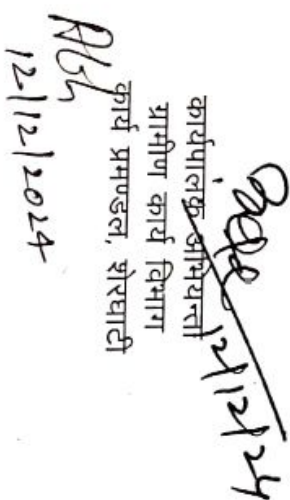 12/12/24
कार्यपालक अभियन्ता
ग्रामीण कार्य विभाग
कार्य प्रमण्डल, शेरघाटी
12/12/2024